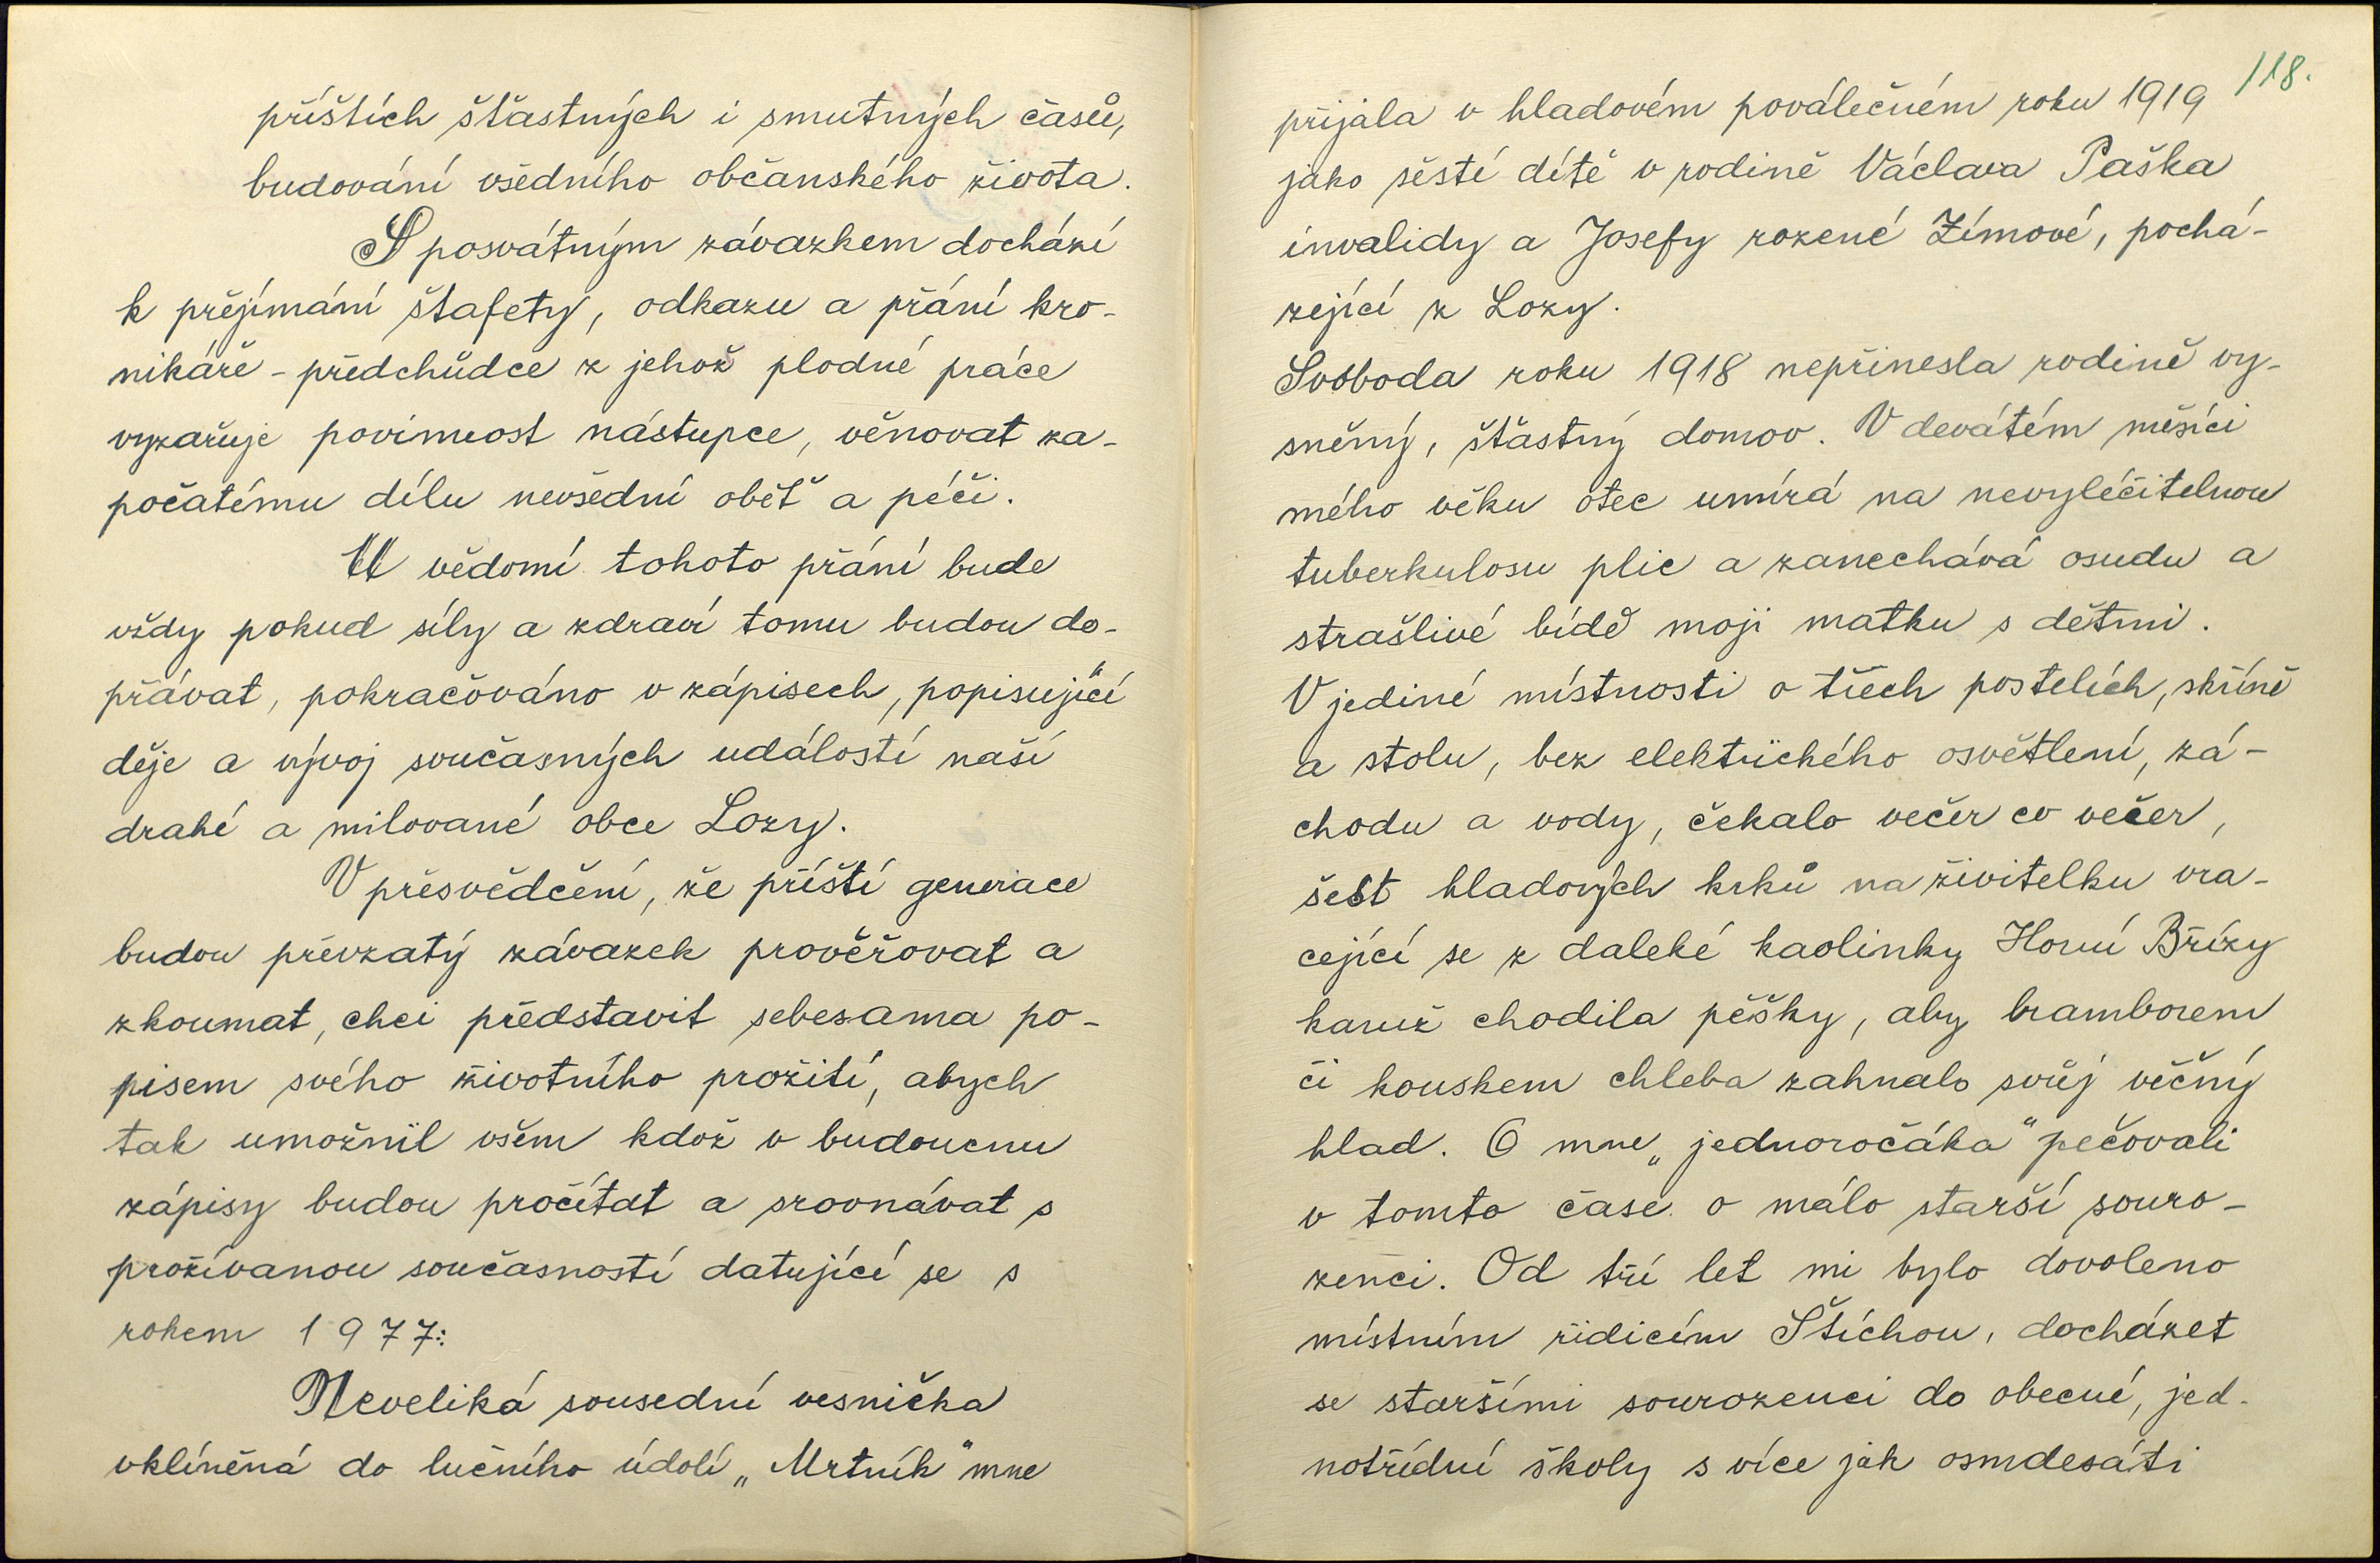 příštích šťastných i smutných časů,
budování všedního občanského života.
S posvátným závazkem dochází
k přejímání štafety, odkazu a přání kro-
nikáře - předchůdce z jehož plodné práce
vyzařuje povinnost nástupce, věnovat za-
počatému dílu nevšední oběť a péči.
U vědomí tohoto přání bude
vždy pokud síly a zdraví tomu budou do-
přávat, pokračováno v zápisech, popisující
děje a vývoj současných událostí naší
drahé a milované obce Lozy.
V přesvědčení, že příští generace
budou převzatý závazek prověřovat a
zkoumat, chci představit sebesama po-
pisem svého životního prožití, abych
tak umožnil všem kdož v budoucnu
zápisy budou pročítat a srovnávat s
prožívanou současností datující se s
rokem 1977:
Neveliká sousední vesnička
vklíněná do lučního údolí „Mrtník" mne
118.
přijala v hladovém poválečném roku 1919
jako šesté dítě v rodině Václava Paška
invalidy a Josefy rozené Zímové, pochá-
zející z Lozy.
Svoboda roku 1918 nepřinesla rodině vy-
sněný, šťastný domov. V devátém měsíci
mého věku otec umírá na nevyléčitelnou
tuberkulosu plic a zanechává osudu a
strašlivé bídě moji matku s dětmi.
V jediné místnosti o třech postelích, skříně
a stolu, bez elektrického osvětlení, zá-
chodu a vody, čekalo večer co večer,
šest hladových krků na živitelku vra-
cející se z daleké kaolinky Horní Břízy
kamž chodila pěšky, aby bramborem
či kouskem chleba zahnalo svůj věčný
hlad. O mne „jednoročáka" pečovali
v tomto čase o málo starší souro-
zenci. Od tří let mi bylo dovoleno
místním řídicím Štíchou, docházet
se staršími sourozenci do obecné, jed-
notřídní školy s více jak osmdesáti